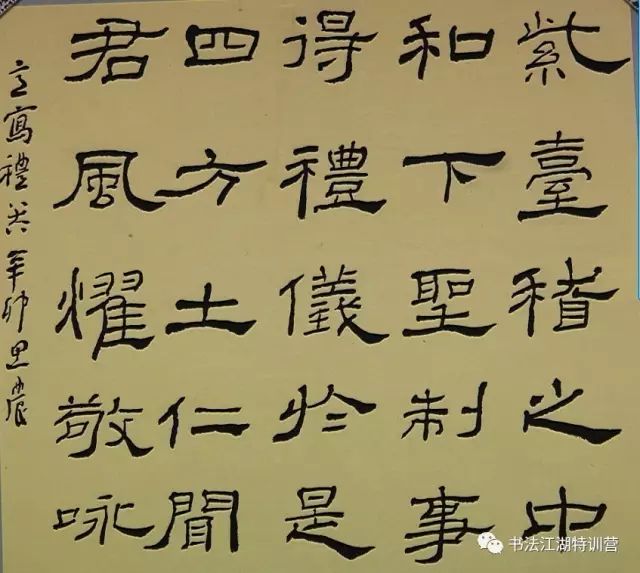 紫臺稽之中
和下聖制事
得禮儀於是
四方土仁聞
君風燿敬咏
言寫禮器辛卯思農
书法江湖特训营